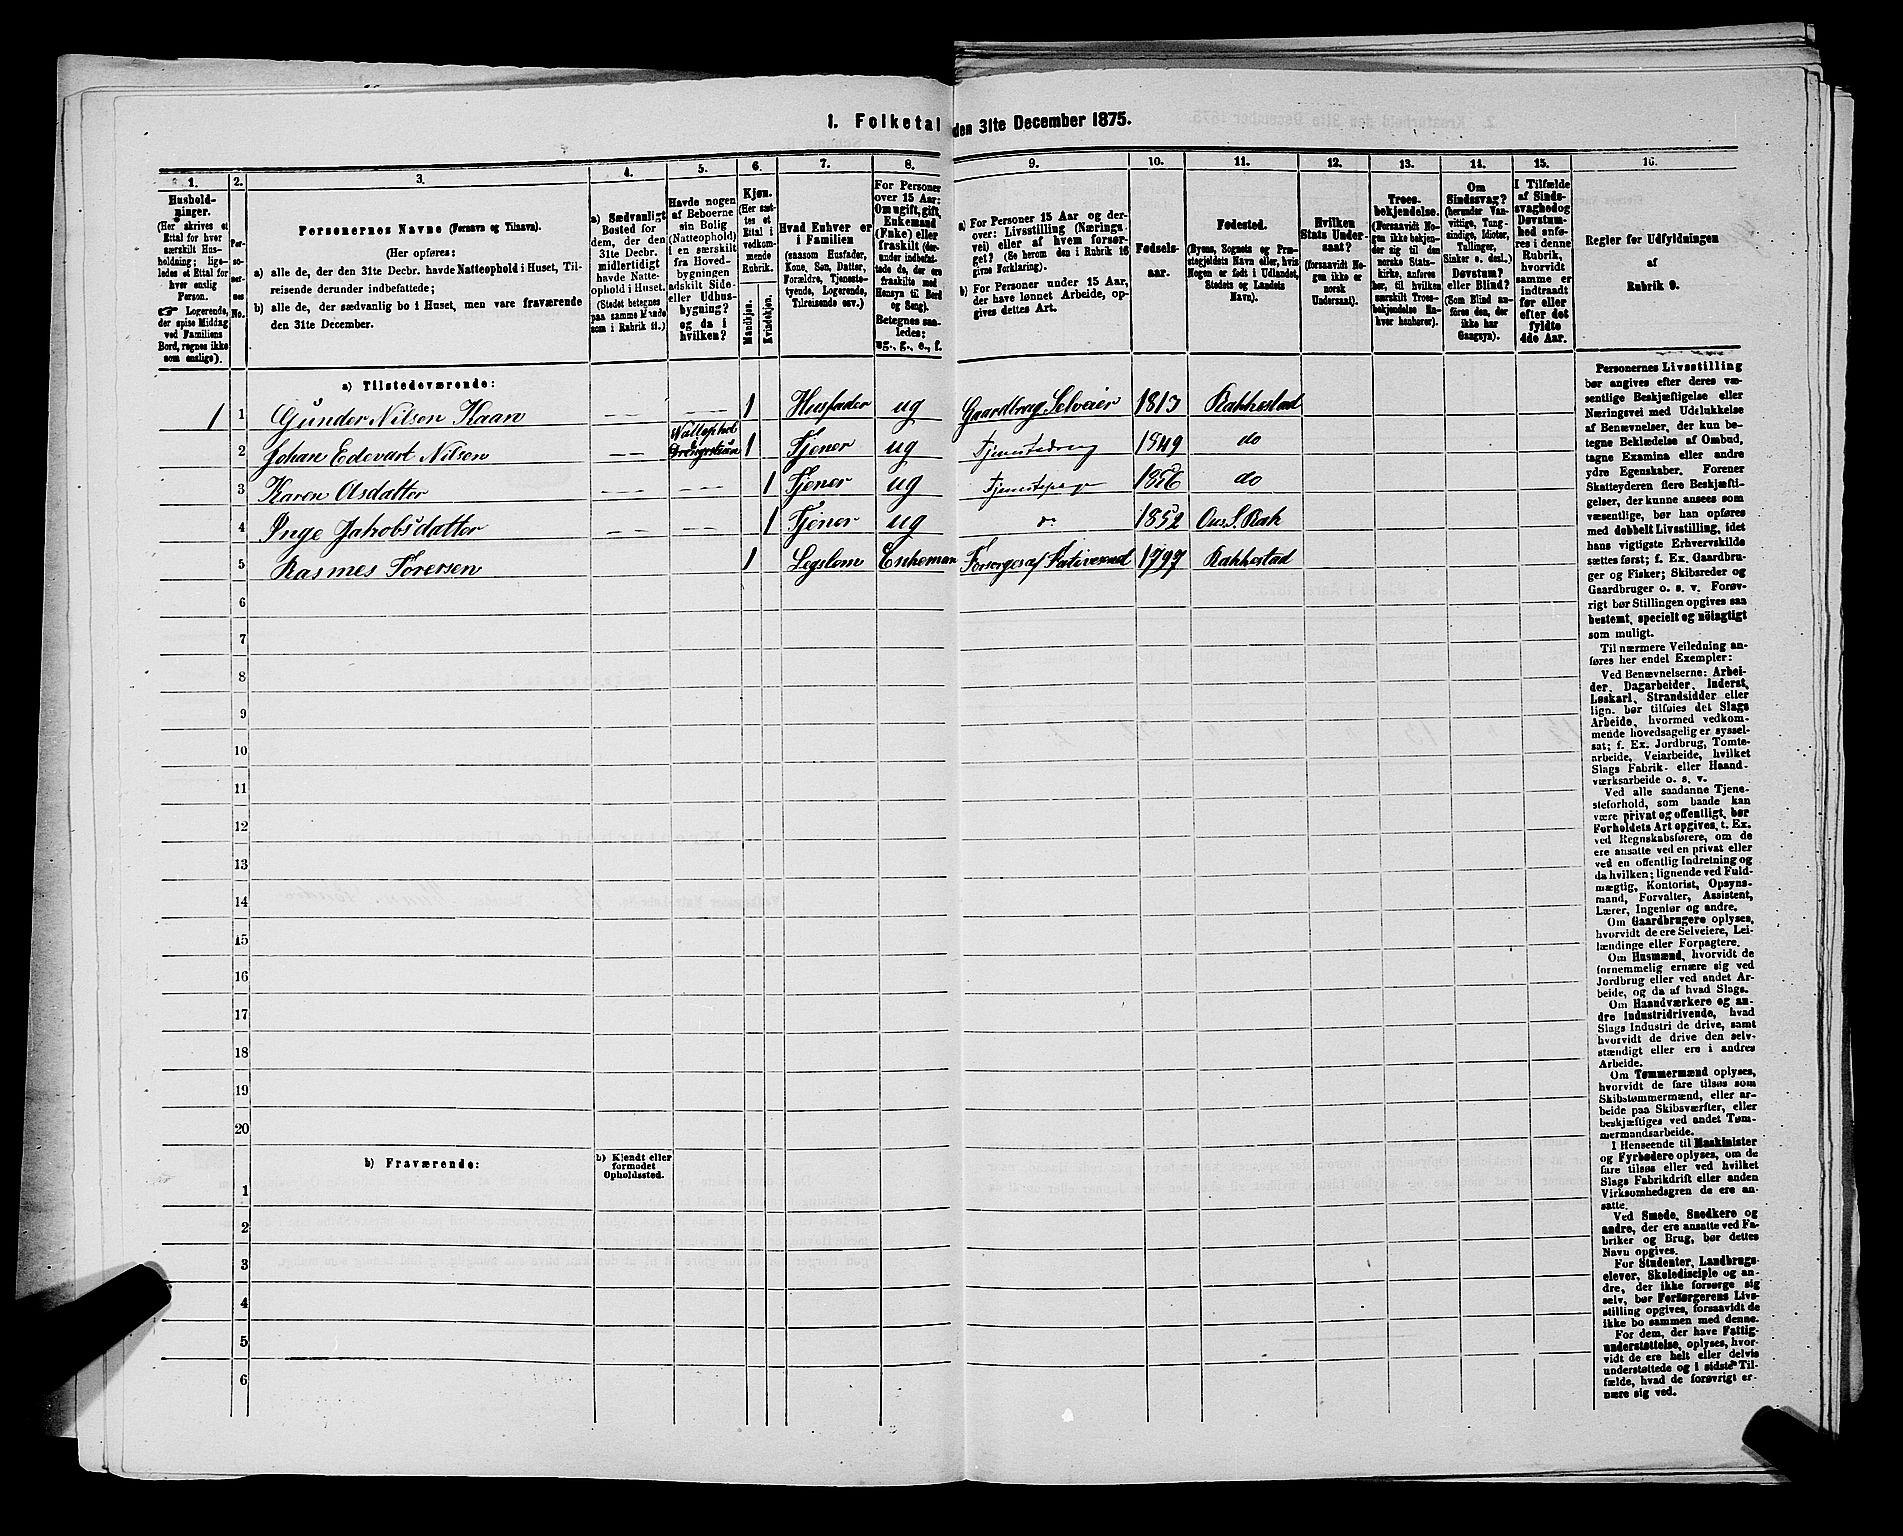 1. Folketal den 31te December 1875.
1. 2. 3. 4. 5. 6. 7. 8. 9. 10. 11. 12. 13. 14. 15. 16.
Hushold-
ninger.
(Her skrives et
Ettal for hver
særskilt Hus-
holdning; lige-
ledes et Ettal for
hver enslig
Person.
☞ Logerende,
der spise Middag
ved Familiens
Bord, regnes ikke
som enslige).
Per-
so-
ner-
nes
No.
Personernes Navne (Fornavn og Tilnavn).
(Her opføres:
a) alle de, der den 31te Decbr. havde Natteophold i Huset, Til-
reisende derunder indbefattede;
b) alle de, der sædvanlig bo i Huset, men vare fraværende
den 31te December.
a) Sædvanligt
Bosted for
dem, der den
31te Decbr.
midlertidigt
havde Natte-
ophold i Huset.
(Stedet betegnes
paa samme Maade
som i Rubrik 11.)
Havde nogen
af Beboerne
sin Bolig
(Natteophold)
i en særskilt
fra Hoved-
bygningen
adskilt Side-
eller Udhus-
bygning?
og da i
hvilken?
Kjøn.
(Her sæt-
tes et
Ettal i
vedkom-
mende
Rubrik.
Mandkjøn.
Kvindekjøn.
Hvad Enhver er
i Familien
(saasom Husfader,
Kone, Søn, Datter,
Forældre, Tjeneste-
tyende, Logerende,
Tilreisende osv.)
For Personer
over 15 Aar:
Om ugift, gift,
Enkemand
(Enke) eller
fraskilt (der-
under indbefat-
tede de, der ere
fraskilte med
Hensyn til Bord
og Seng).
Betegnes saa-
ledes:
ug., g., e., f.
a) For Personer 15 Aar og der-
over: Livsstilling (Nærings-
vei) eller af hvem forsør-
get? (Se herom den i Rubrik 16
givne Forklaring).
b) For Personer under 15 Aar,
der have lønnet Arbeide, op-
gives dettes Art.
Fødsels-
aar.
Fødested.
(Byens, Sognets og Præ-
stegjeldets Navn eller, hvis
Nogen er født i Udlandet,
Stedets og Landets
Navn).
Hvilken
Stats Under-
saat?
(forsaavidt No-
gen ikke er
norsk
Undersaat).
Troes-
bekjendelse.
(Forsaavidt No-
gen ikke bekjen-
der sig til den
norske Stats-
kirke, anføres
her, til hvilken
særskilt Troes-
bekjendelse En-
hver henhører).
Om
Sindssvag?
(herunder Van-
vittige, Tung-
sindige, Idioter,
Tullinger,
Sinker o. desl.)
Døvstum?
eller Blind?
(Som Blind an-
føres den, der
ikke har
Gangsyn).
I Tilfælde
af Sinds-
svaghed og
Døvstum-
hed anfø-
res i denne
Rubrik,
hvorvidt
samme er
indtraadt
før eller
efter det
fyldte
4de Aar.
Regler for Udfyldningen
af
Rubrik 9.
a) Tilstedeværende:
1 1 Gunder Nilsen Kaan 1 Husfader ug Gaardbrug Selveier 1813 Rakkestad
2 Johan Edevart Nilsen Natophol Drengestuen 1 Tjener ug Tjenestedreng 1849 do
3 Karen Olsdatter 1 Tjener ug Tjenestepige 1856 do
4 Inge Jakobsdatter 1 Tjener ug do 1852 Ous S. Rak
5 Rasmes Torersen 1 Legslem Enkeman Forsørges af Fativesned 1797 Rakkestad
6
7
8
9
10
11
12
13
14
15
16
17
18
19
20
b) Fraværende:
b) Kjendt eller
formodet
Opholdssted.
1
2
3
4
5
6
Personernes Livsstilling
bør angives efter deres væ-
sentlige Beskjæftigelse eller
Næringsvei med Udelukkelse
af Benævnelser, der kun be-
tegne Beklædelse af Ombud,
tagne Examina eller andre
ydre Egenskaber. Forener
Skatteyderen flere Beskjæfti-
gelser, der kunne ansees som
væsentlige, bør han opføres
med dobbelt Livsstilling, idet
hans vigtigste Erhvervskilde
sættes først; f. Ex. Gaardbru-
ger og Fisker; Skibsreder og
Gaardbruger o. s. v. Forøv-
rigt bør Stillingen opgives saa
bestemt, specielt og nøiagtigt
som muligt.
Til nærmere Veiledning an-
føres her endel Exempler:
Ved Benævnelserne: Arbei-
der, Dagarbeider, Inderst,
Løskarl, Strandsidder eller
lign. bør tilføies det Slags
Arbeide, hvormed vedkom-
mende hovedsagelig er syssel-
sat; f. Ex. Jordbrug, Tomte-
arbeide, Veiarbeide, hvilket
Slags Fabrik- eller Haand-
værksarbeide o. s. v.
Ved alle saadanne Tjene-
steforhold, som baade kan
være privat og offentligt, bør
Forholdets Art opgives, t. Ex.
ved Regnskabsførere, om de
ere ansatte ved en privat eller
ved en offentlig Indretning og
da hvilken; lignende ved Fuld-
mægtig, Kontorist, Opsyns-
mand, Forvalter, Assistent,
Lærer, Ingeniør og andre.
Om Gaardbrugere oplyses,
hvorvidt de ere Selveiere, Lei-
lændinge eller Forpagtere.
Om Husmænd, hvorvidt de
fornemmelig ernære sig ved
Jordbrug eller ved andet Ar-
beide, og da af hvad Slags.
Om Haandværkere og an-
dre Industridrivende, hvad
Slags Industri de drive, samt
hvorvidt de drive den selv-
stændigt eller ere i andres
Arbeide.
Om Tømmermænd oplyses,
hvorvidt de fare tilsøs som
Skibstømmermænd, eller ar-
beide paa Skibsværfter, eller
beskjæftiges ved andet Tøm-
mermandsarbeide.
I Henseende til Maskinister
og Fyrbødere oplyses, om de
fare tilsøs eller ved hvilket
Slags Fabrikdrift eller anden
Virksomhedsgren de ere an-
satte.
Ved Smede, Snedkere og
andre, der ere ansatte ved Fa-
briker og Brug, bør dettes
Navn opgives.
For Studenter, Landbrugs-
elever, Skoledisciple og an-
dre, der ikke forsørge sig
selv, bør Forsørgerens Livs-
stilling opgives, forsaavidt de
ikke bo sammen med denne.
For dem, der have Fattig-
understøttelse, oplyses, hvor-
vidt de ere helt eller delvis
understøttede og i sidste Til-
fælde, hvad de forøvrigt er-
nære sig ved.